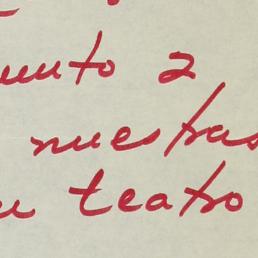 unto 2
nuestras
teatro